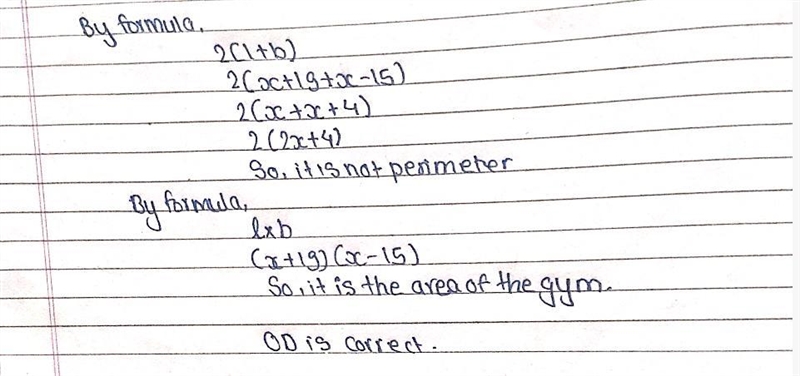 By formula,
2(l+b)
2(x+19+x-15)
2(x+x+4)
2(2x+4)
So, it is not perimeter
By formula,
l×b
(x+19)(x-15)
So, it is the area of the gym.
OD is correct.